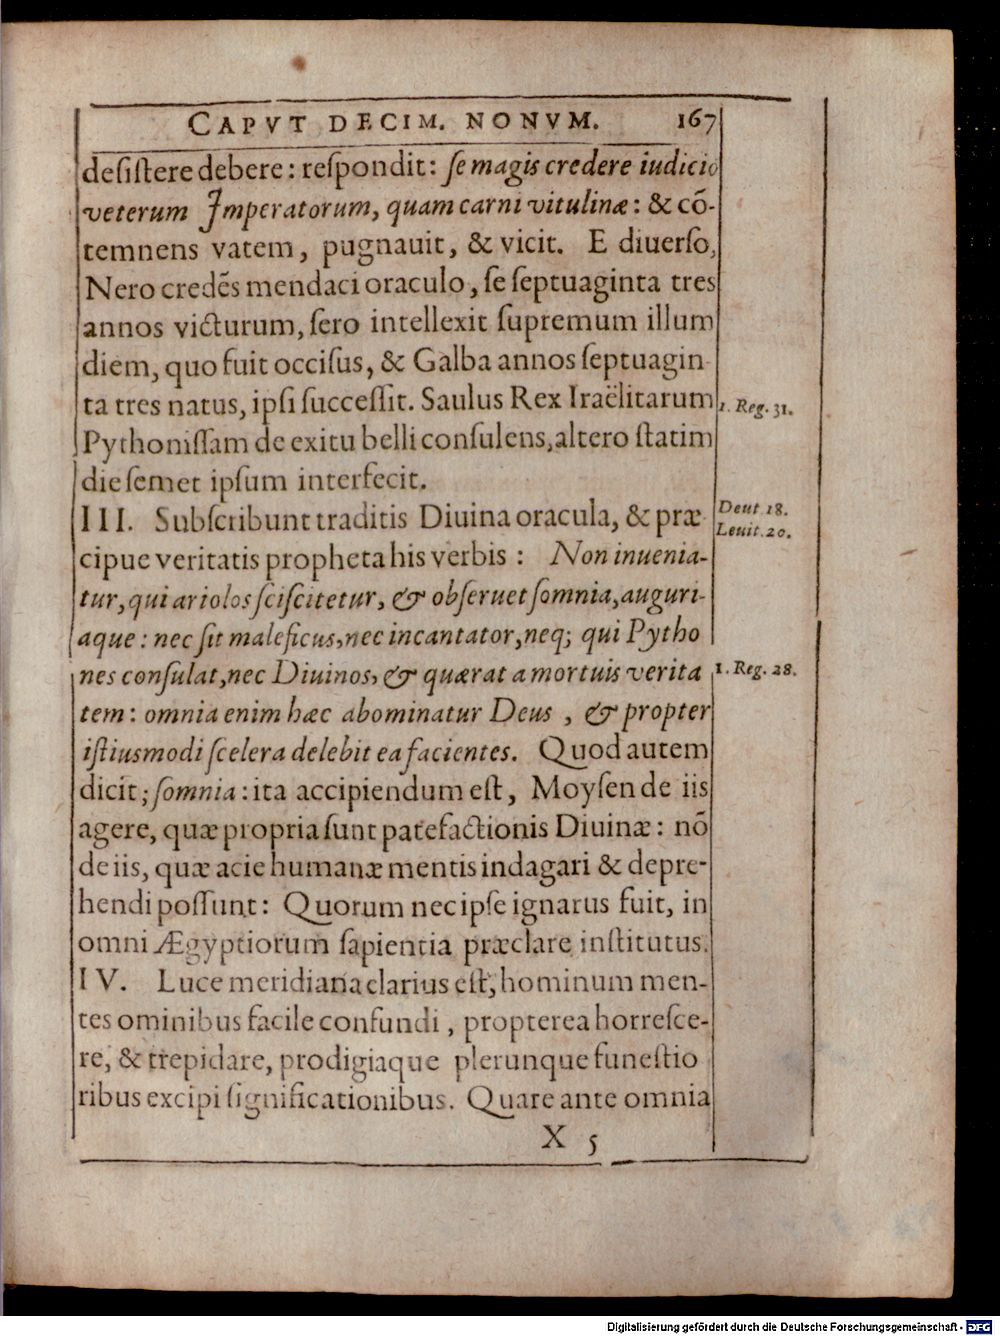 CAPVT DECIM. NONVM. 167
desistere debere: respondit: se magis credere iudicio
veterum Imperatorum, quam carni vitulinæ: & cō-
temnens vatem, pugnauit, & vicit. E diuerso,
Nero credēs mendaci oraculo, se septuaginta tres
annos victurum, sero intellexit supremum illum
diem, quo fuit occisus, & Galba annos septuagin
ta tres natus, ipsi successit. Saulus Rex Iraëlitarum
1. Reg. 31.
Pythonissam de exitu belli consulens, altero statim
die semet ipsum interfecit.
III. Subscribunt traditis Diuina oracula, & præ
Deut 18.
Leuit. 20.
cipue veritatis propheta his verbis: Non inuenia-
tur, qui ariolos sciscitetur, & obseruet somnia, auguri-
aque: nec sit maleficus, nec incantator, neq; qui Pytho
nes consulat, nec Diuinos, & quærat a mortuis verita
1. Reg. 28.
tem: omnia enim hæc abominatur Deus, & propter
istiusmodi scelera delebit ea facientes. Quod autem
dicit; somnia: ita accipiendum est, Moysen de iis
agere, quæ propria sunt patefactionis Diuinæ: nō
de iis, quæ acie humanæ mentis indagari & depre-
hendi possunt: Quorum nec ipse ignarus fuit, in
omni Ægyptiorum sapientia præclare institutus.
IV. Luce meridiana clarius est, hominum men-
tes ominibus facile confundi, propterea horresce-
re, & trepidare, prodigiaque plerunque funestio
ribus excipi significationibus. Quare ante omnia
X 5
Digitalisierung gefördert durch die Deutsche Forschungsgemeinschaft - DFG